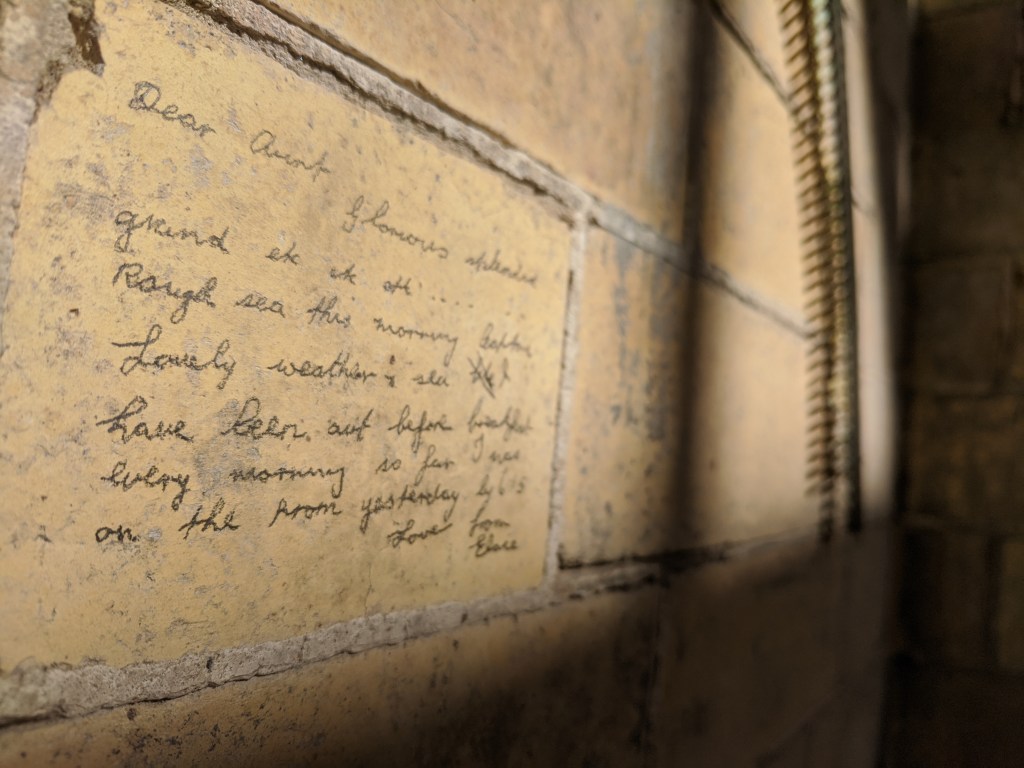 Dear Aunt
Glorious splendid
grkind etc etc etc ....
Rough sea this morning
Lovely weather & sea
have been out before breakfast
every morning so far I was
on the prom yesterday by 6 15
Love from
Elsie